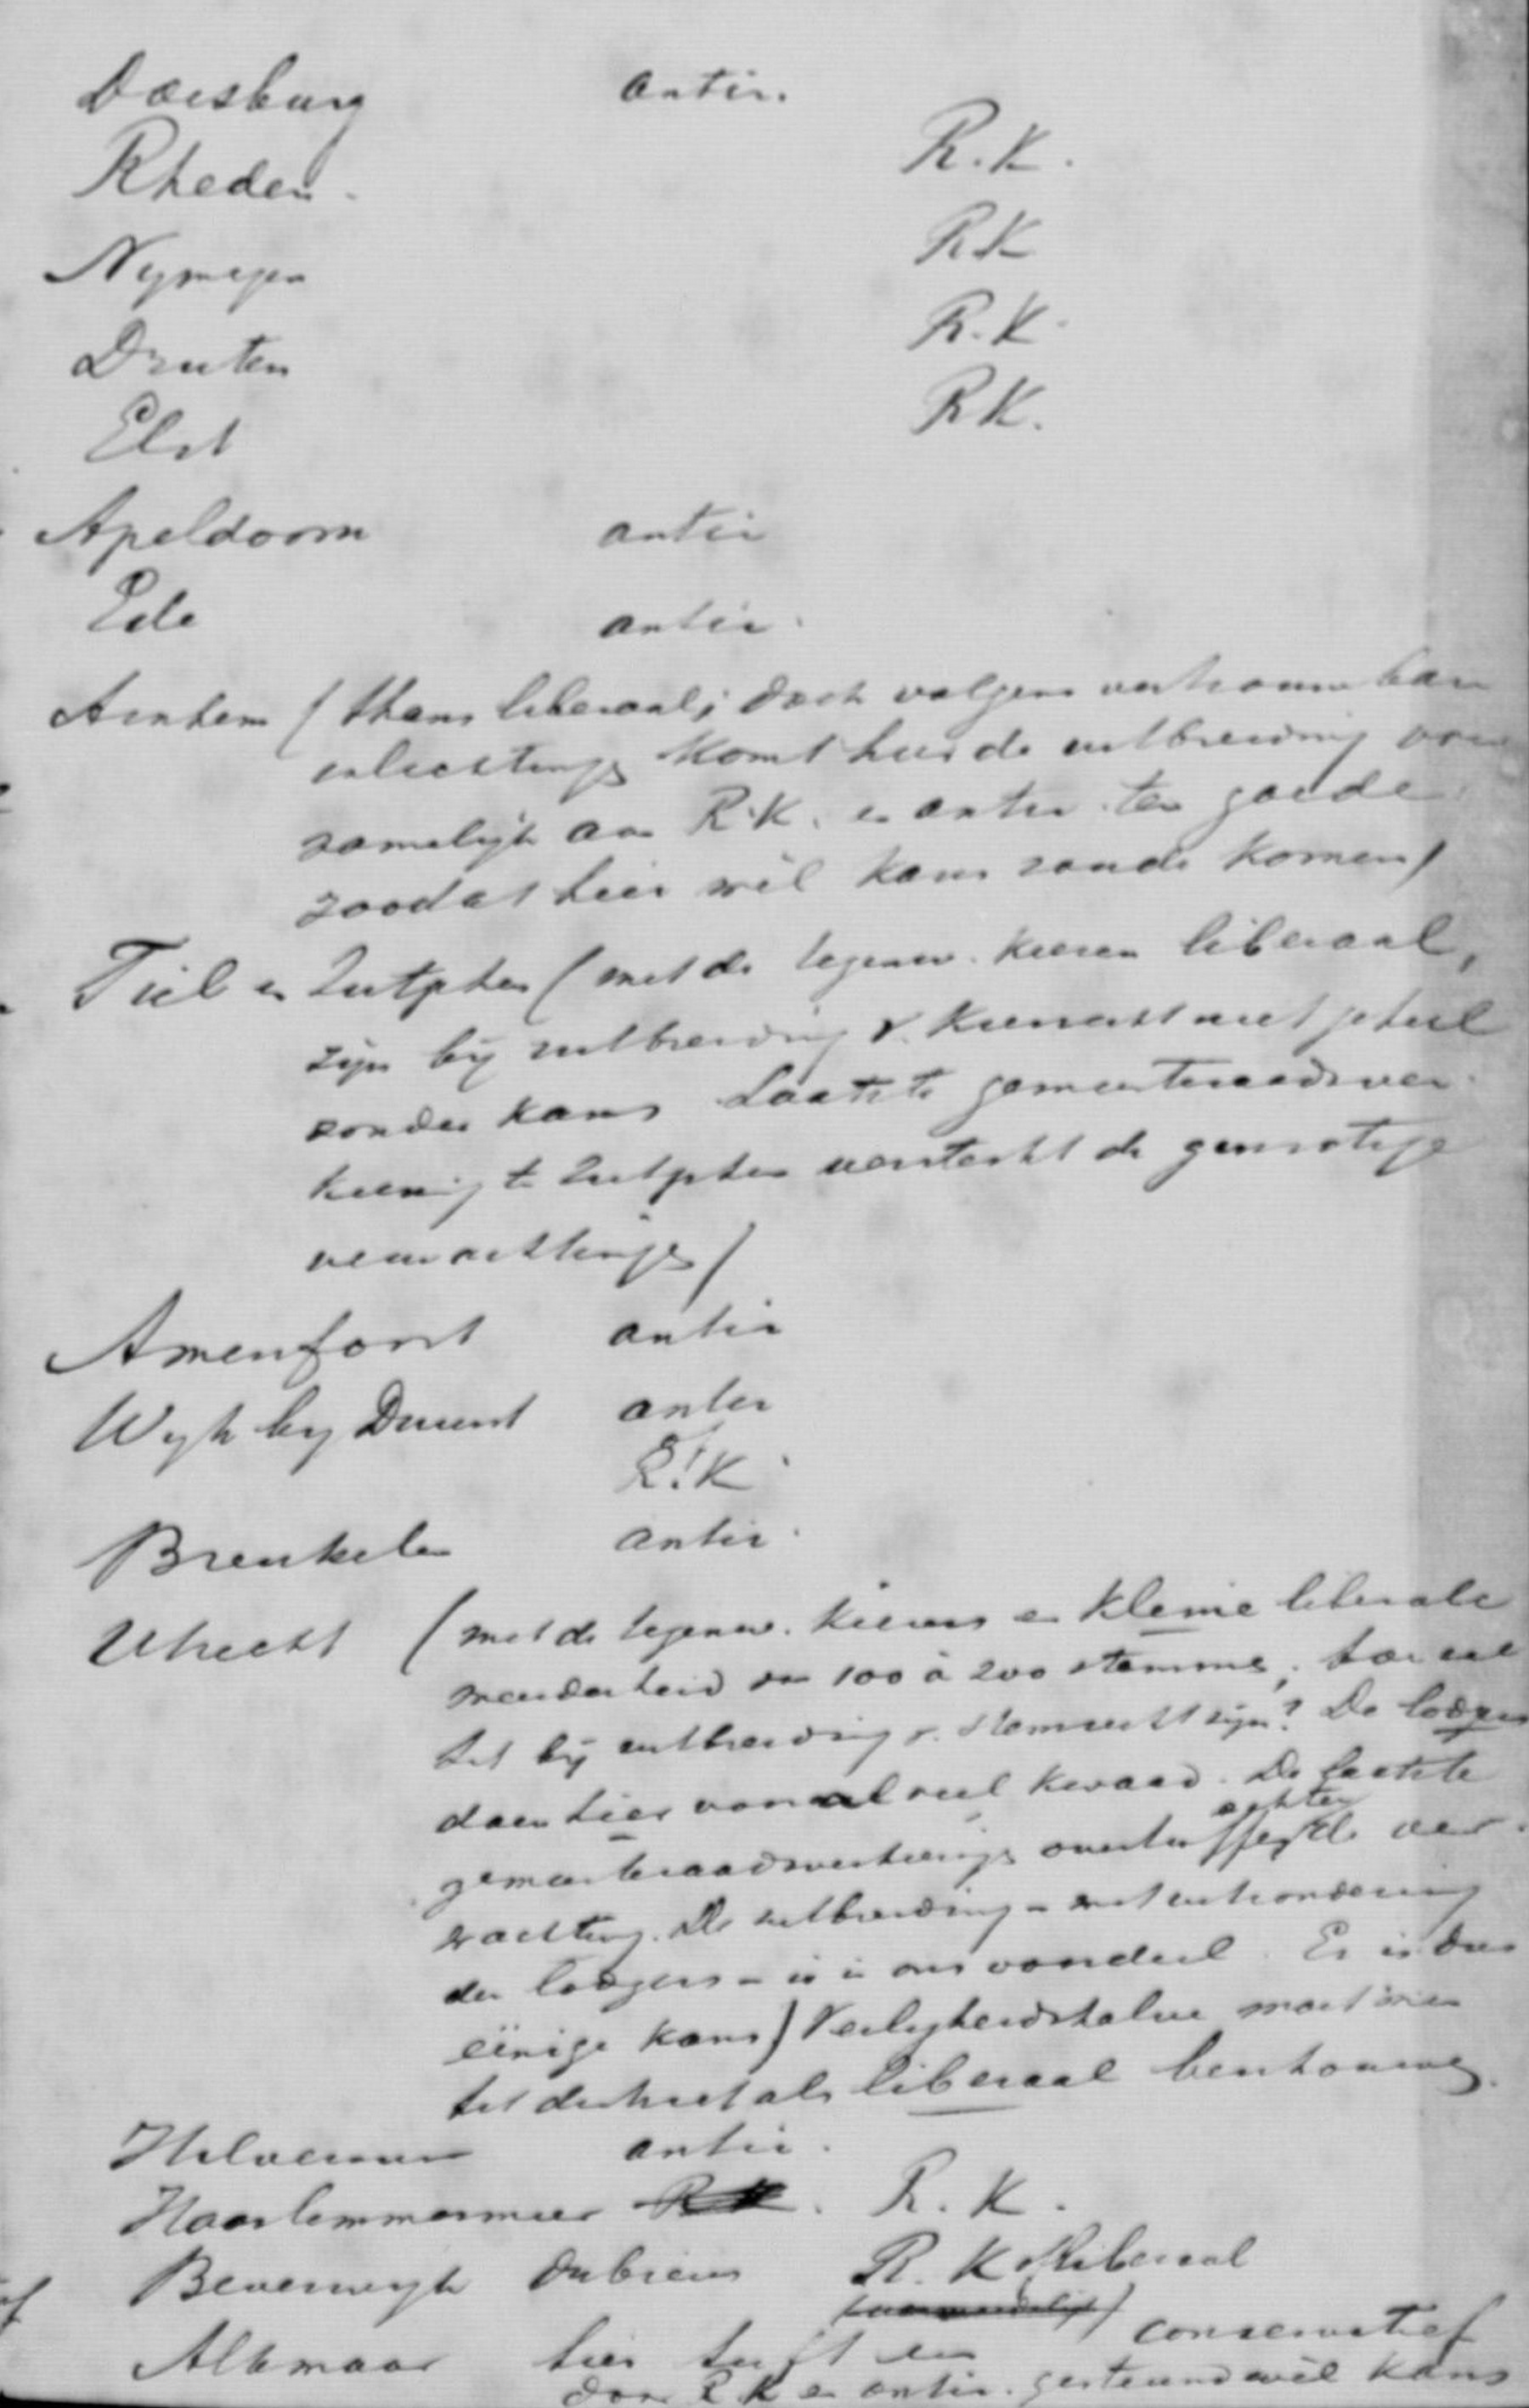 Doesburg antir.
Rheden R.K.
Nijmegen RK
Druten R.K.
Elst RK.
Apeldoorn antir
Ede antir.
Arnhem (thans liberaal; doch volgens vertrouwbare
inlichtingen komt hier de uitbreiding voor
namelijk aan R.K. en antir. ten goede
zoodat hier wel kans zoude komen)
Tiel en Zutphen (met de tegenw. kiezers liberaal,
zijn bij uitbreiding v. kiesrecht niet geheel
zonder kans. Laatste gemeenteraadsver-
kiezing te Zutphen versterkt de gunstige
verwachtingen)
Amersfoort antir
Wijk bij Duurst antir
of
R.K.
Breukelen antir.
Utrecht (met de tegenw. kiezers een kleine liberale
meerderheid van 100 à 200 stemmen; hoe zal
het bij uitbreiding v. stemrecht zijn? De lodgers
doen hier vooral veel kwaad. De laatste
gemeenteraadsverkiezingen overtroffen echter de ver-
wachting. De uitbreiding – met uitzondering
der lodgers – is in ons voordeel. Er is dus
eenige kans) Veiligheidshalve moet men
het district als liberaal beschouwen.
Hilversum antir.
Haarlemmermeer RK. R.K.
Beverwijk dubieus R.K. of liberaal
Alkmaar hier heeft een conservatief
door R.K. en antir. gesteund wel kans